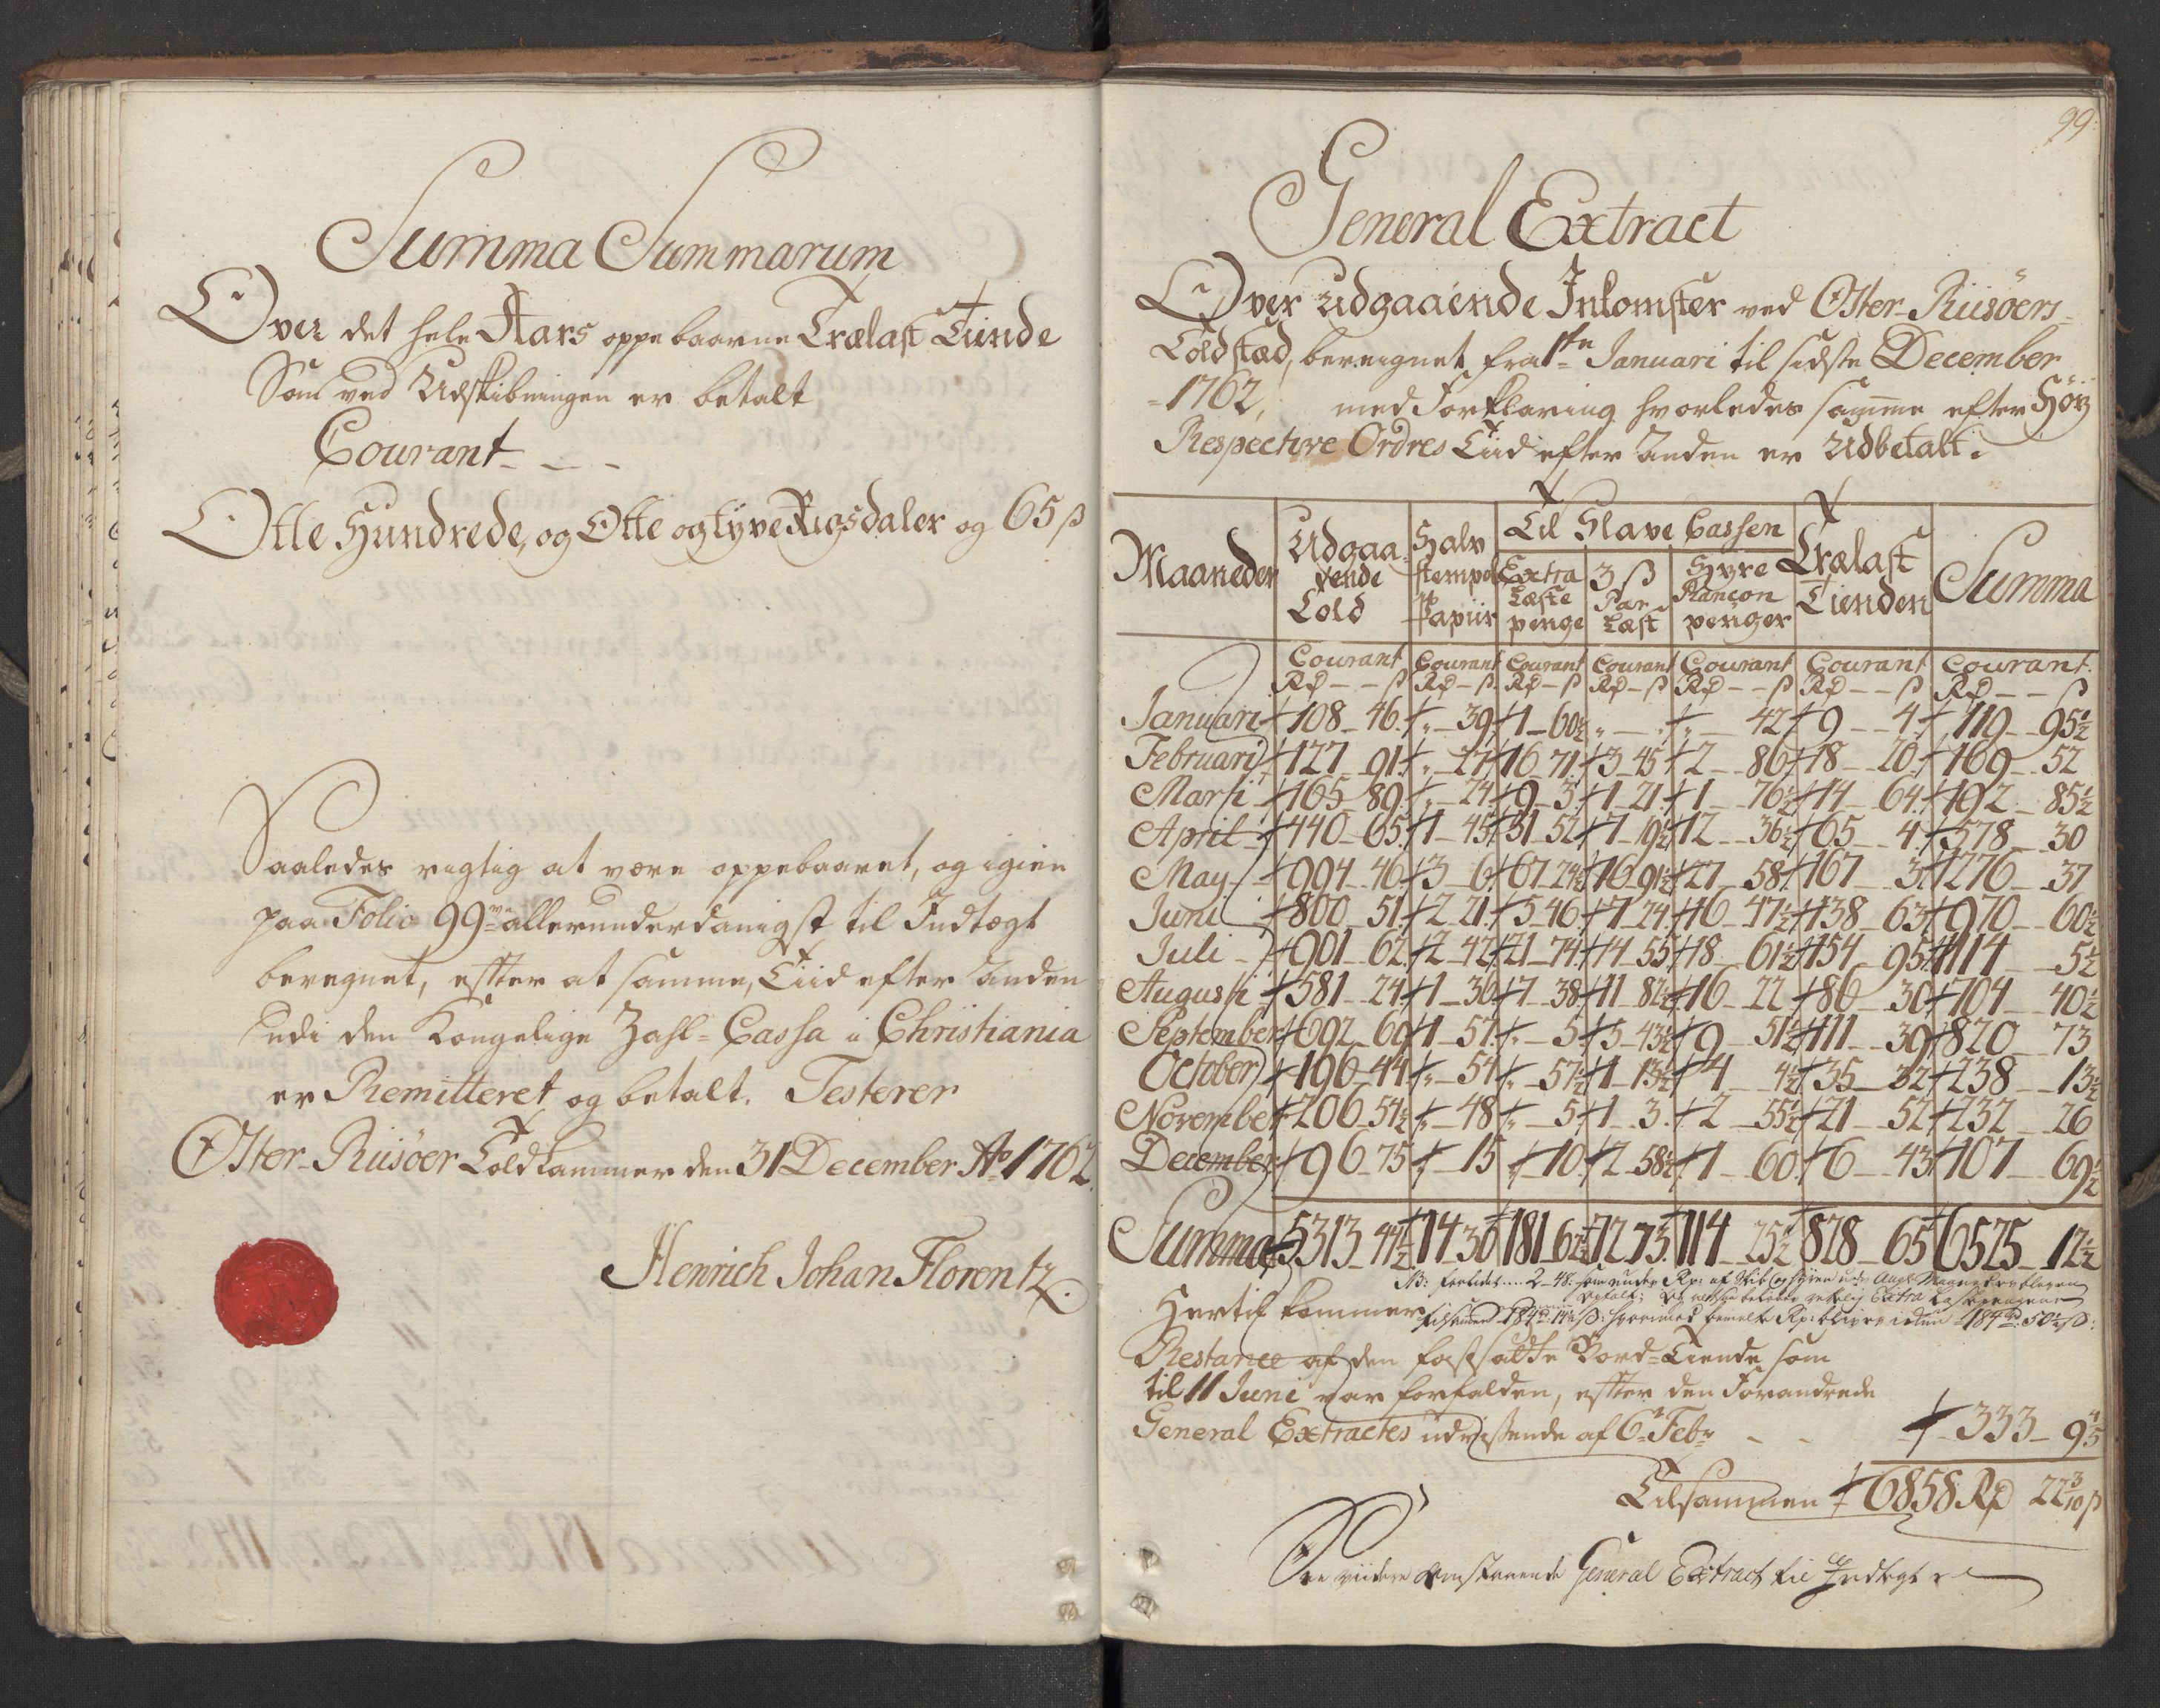 Summa Summarum
Over det hele Aars oppebaarne Trælast Tiende
Som ved Udskibningen er betalt
Courant
Otte Hundrede, og Otte og tyve Rigsdaler og 65 ß
Saaledes rigtig at være oppebaaret, og igien
paa Folio 99 allerunderdanigst til Indtægt
beregnet, efter at samme, Tiid efter anden
udi den Kongelige Zahl-Cassa i Christiania
er Remitteret og betalt. Testerer
Øster-Riisöer Toldkammer den 31 December Ao 1762.
Henrich Johan Florentz.
99.
General Extract
Over Udgaaende Inkomster ved Øster-Riisöers
Toldsted, beregnet fra 1te Januari til sidste December
1762, med Forklaring hvorledes samme efter Höy
Respective Ordres Tiid efter anden er Udbetalt.
Maaneder | Udgaaende Told | Halv stempel Papiir | Til Slave Cassen: Extra Læste penge | 3 ß Par Læst | Hyre Rancon penger | Trælast Tienden | Summa
Courant Rd ß | Courant Rd ß | Courant Rd ß | Courant Rd ß | Courant Rd ß | Courant Rd ß | Courant Rd ß
Januari 108 46 | " 39 | 1 60½ | " | " 42 | 9 4 | 119 95½
Februari 127 91 | " 27 | 16 71 | 3 45 | 2 86 | 18 20 | 169 52
Marti 165 89 | " 24 | 9 5 | 1 21 | 1 76½ | 14 64 | 192 85½
April 440 65 | 1 45 | 51 52 | 7 19½ | 12 36½ | 65 4 | 578 30
May 994 46 | 3 6 | 67 24½ | 16 91½ | 27 58 | 167 3 | 1276 37
Juni 800 51 | 2 21 | 5 46 | 7 24 | 16 47½ | 138 63 | 970 60½
Juli 901 62 | 2 42 | 21 74 | 14 55 | 18 61½ | 154 95 | 1114 5½
Augusti 581 24 | 1 36 | 7 38 | 11 82½ | 16 22 | 86 30 | 704 40½
September 692 69 | 1 57 | " 5 | 5 43½ | 9 51½ | 111 39 | 820 73
October 196 44 | " 54 | " 57½ | 1 13½ | 4 4½ | 35 32 | 238 13½
November 206 54½ | " 48 | " 5 | 1 3 | 2 55½ | 21 52 | 232 26
December 96 75 | " 15 | " 10 | 2 58½ | 1 60 | 6 43 | 107 69½
Summa 5313 42½ | 14 30 | 181 62½ | 72 73 | 114 25½ | 828 65 | 6525 12½
Hertil kommer
Restance af den fastsatte Bord-Tiende som
til 11 Juni var forfalden, efter den Forandrede
General Extractes udvisende af 6 Febr 333 9 4/5
Tilsammen 6858 Rd 22 3/10 ß
General Extract til Indtægt